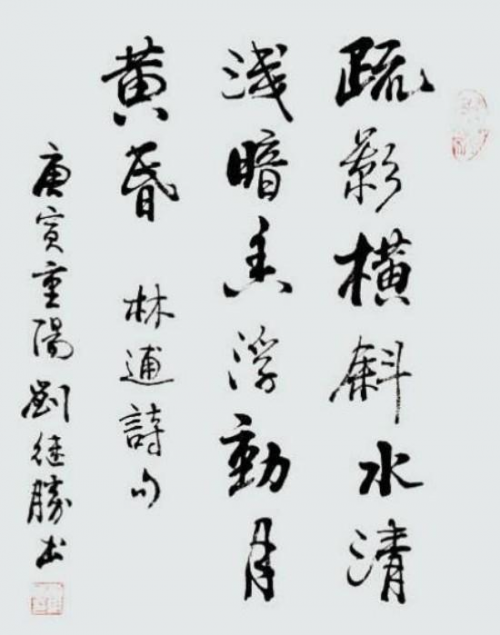 疏影橫斜水清
浅暗香浮動月
黄昏 林逋詩句
庚寅重陽劉継勝书